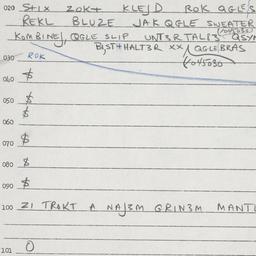 020 Stix ZOK+ KLEJD ROK QGLES
REKL BLUZE JAK QGLE SWEATER
KOMBINEJ, QGLE SLIP UNT3R TALI3S QSYM
BJST+HALT3R XX / QGLEBRAS
030 ROK
040 $
050 $
$
060
070 $
080 $
090 $
100 ZI TRAKT A NAJ3M GRIN3M MANTL
101 O